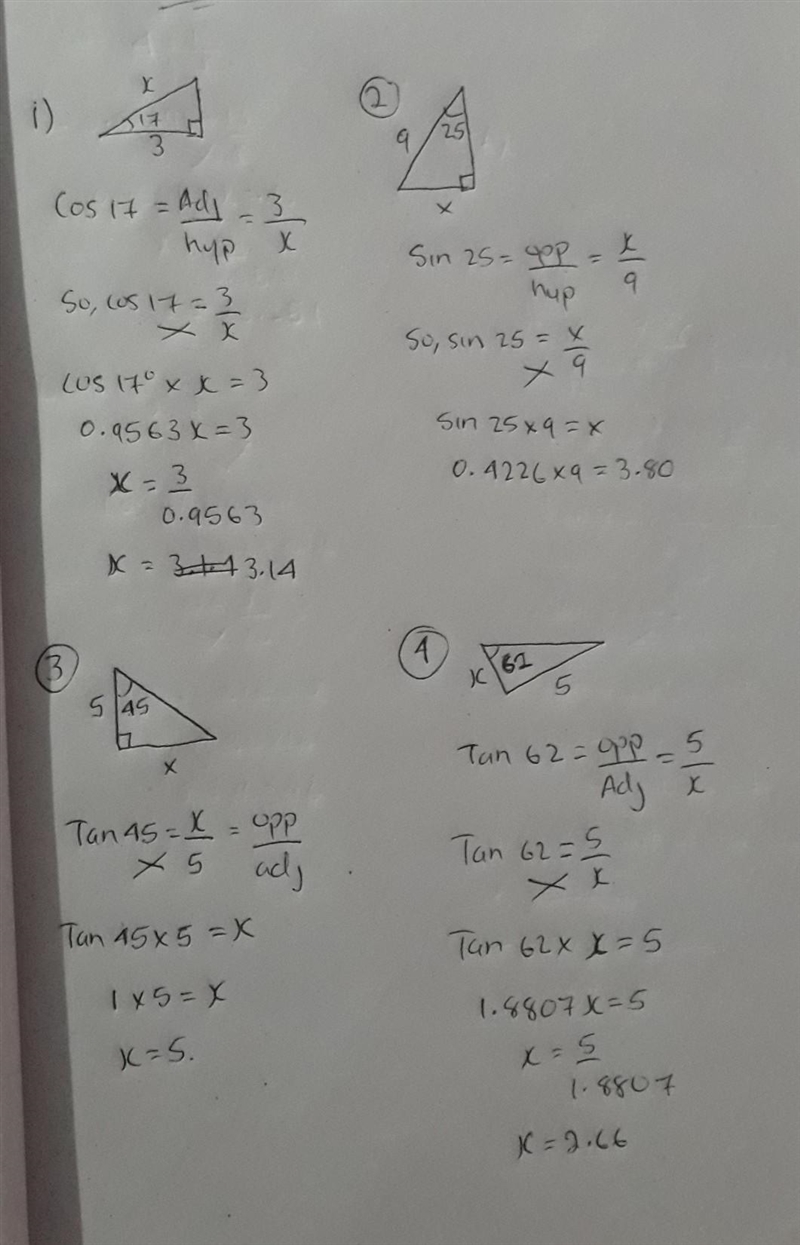 i)
x
17
3
Cos 17 = Adj/hyp = 3/x
So, cos 17 = 3/x
Cos 17° × x = 3
0.9563x = 3
x = 3/0.9563
x = 3.14
②
9
25
x
Sin 25 = opp/hyp = x/9
So, sin 25 = x/9
Sin 25 × 9 = x
0.4226 × 9 = 3.80
③
5
45
x
Tan 45 = x/5 = opp/adj
Tan 45 × 5 = x
1 × 5 = x
x = 5.
④
x
62
5
Tan 62 = opp/Adj = 5/x
Tan 62 = 5/x
Tan 62 × x = 5
1.8807x = 5
x = 5/1.8807
x = 2.66